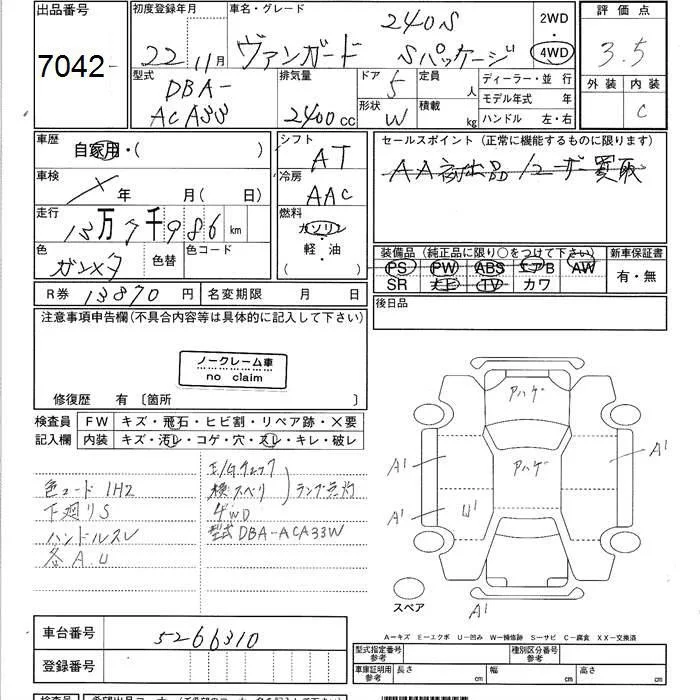 出品番号 初度登録年月 車名・グレード 2WD 評価点
7042 22 11月 ヴァンガード 240S Sパッケージ 4WD 3.5
型式 DBA-ACA33 排気量 2400cc ドア 5 定員 人 ディーラー・並 行 外装 内装
形状 W 積載 kg モデル年式 年 C
ハンドル 左・右
車歴 自家用・( ) シフト AT セールスポイント (正常に機能するものに限ります)
車検 × 年 月( 日) 冷房 AAC AA初出品/ユーザー買取
走行 13万7千986 km 燃料 ガソリン・軽・油
色 ガンメタ 色替 色コード 装備品 (純正品に限り○をつけて下さい) 新車保証書
PS PW ABS エアB AW 有・無
SR ナビ TV カワ
R券 13870 円 名変期限 月 日 後日品
注意事項申告欄(不具合内容等は具体的に記入して下さい)
ノークレーム車
no claim
修復歴 有 〔箇所 〕
検査員 FW キズ・飛石・ヒビ割・リペア跡・X要
記入欄 内装 キズ・汚レ・コゲ・穴・スレ・キレ・破レ
色コード 1H2
下廻りS
ハンドルスレ
各A.U
E/Gチェック
横スベリ
ランプ点灯
4WD
型式 DBA-ACA33W
アハゲ
アハゲ
A1
A1
A1
U1
A1
スペア
A－キズ E－エクボ U－凹み W－補修跡 S－サビ C－腐食 XX－交換済
車台番号 5266310
登録番号
型式指定番号 参考 種別区分番号 参考
車庫証明用 参考 長さ cm 幅 cm 高さ cm